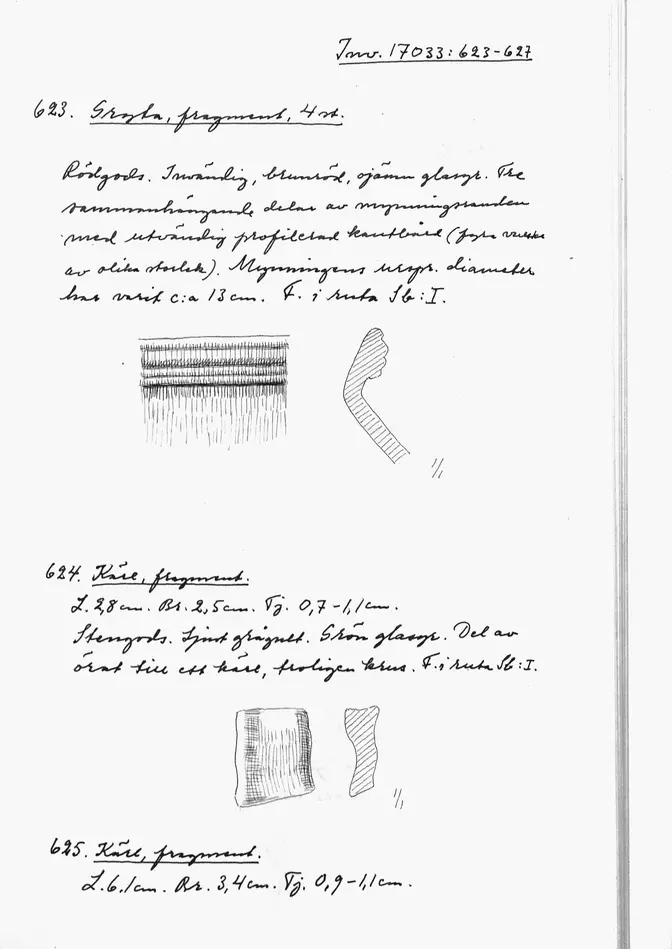 Inv. 17033:623-627
623. Gryta, fragment, 4 st.
Rödgods. Invändig, brunröd, ojämn glasyr. Tre
sammanhängande delar av mynningsranden
med utvändig profilerad kantbård (fyra valkar
av olika storlek). Mynningens urspr. diameter
har varit c:a 13 cm. F. i ruta Sb:I.
1/1
624. Kärl, fragment.
L. 2,8 cm. Br. 2,5 cm. Tj. 0,7-1,1 cm.
Stengods. Ljust grågult. Grön glasyr. Del av
örat till ett kärl, troligen krus. F. i ruta Sb:I.
1/1
625. Kärl, fragment.
L. 6,1 cm. Br. 3,4 cm. Tj. 0,9-1,1 cm.